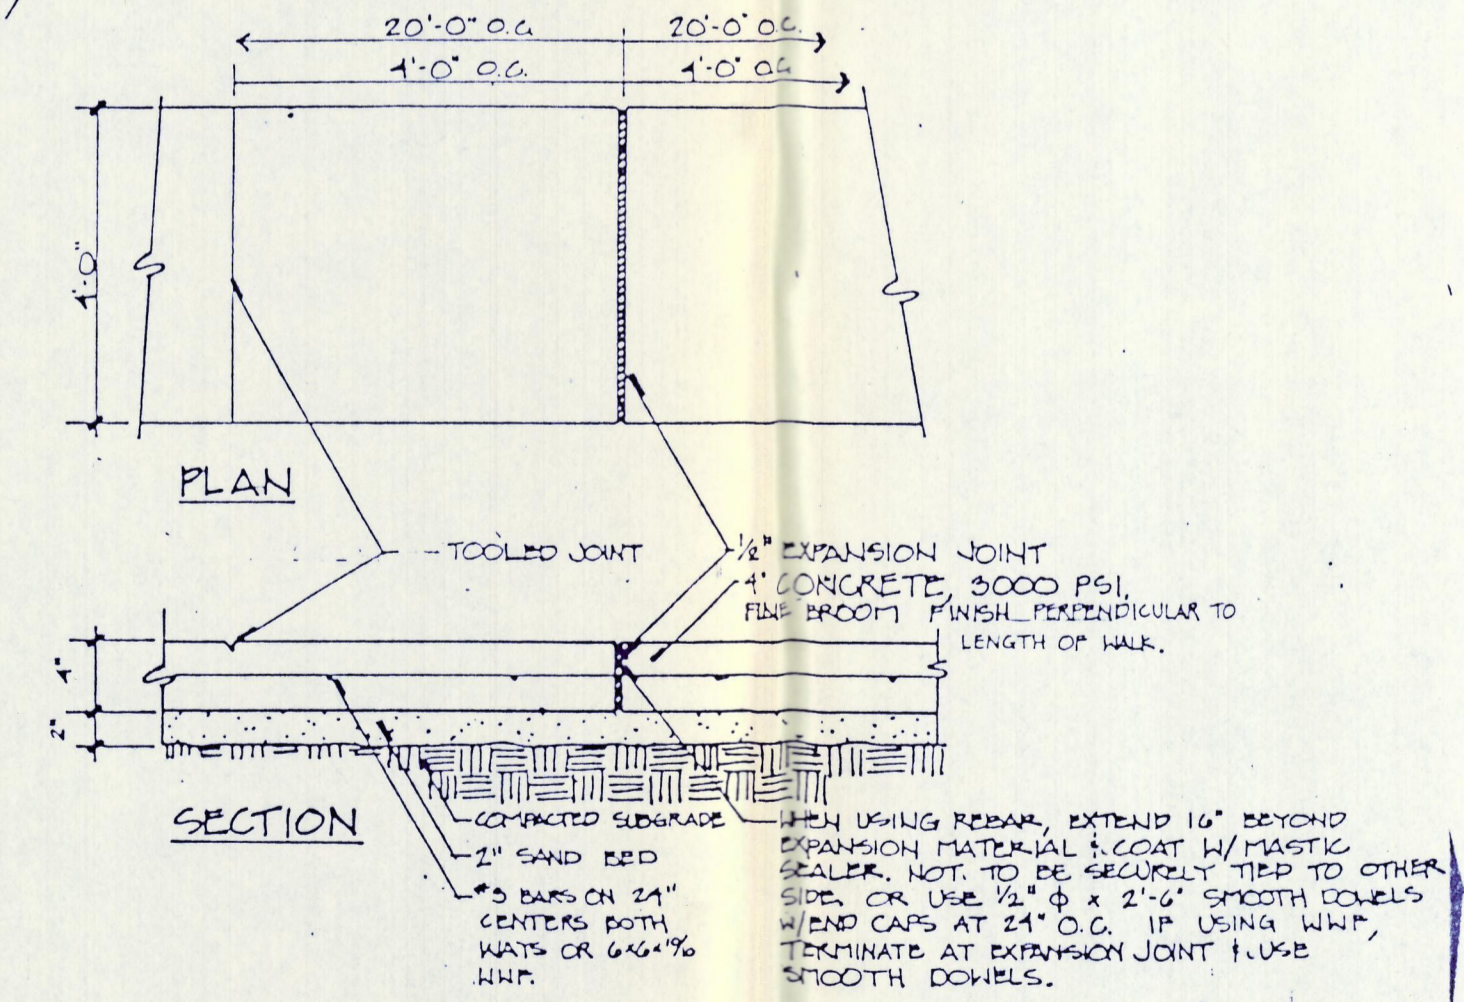 20'-0" O.C. 20'-0" O.C.
4'-0" O.C. 4'-0" O.C.
4'-0"
PLAN
TOOLED JOINT
1/2" EXPANSION JOINT
4" CONCRETE, 3000 PSI,
FINE BROOM FINISH PERPENDICULAR TO
LENGTH OF WALK.
4"
2"
SECTION
COMPACTED SUBGRADE
2" SAND BED
#3 BARS ON 24"
CENTERS BOTH
WAYS OR 6x6x10/10
WWF.
WHEN USING REBAR, EXTEND 16" BEYOND
EXPANSION MATERIAL & COAT W/ MASTIC
SEALER. NOT TO BE SECURELY TIED TO OTHER
SIDE, OR USE 1/2" Φ x 2'-6" SMOOTH DOWELS
W/END CAPS AT 24" O.C. IF USING WWF,
TERMINATE AT EXPANSION JOINT & USE
SMOOTH DOWELS.